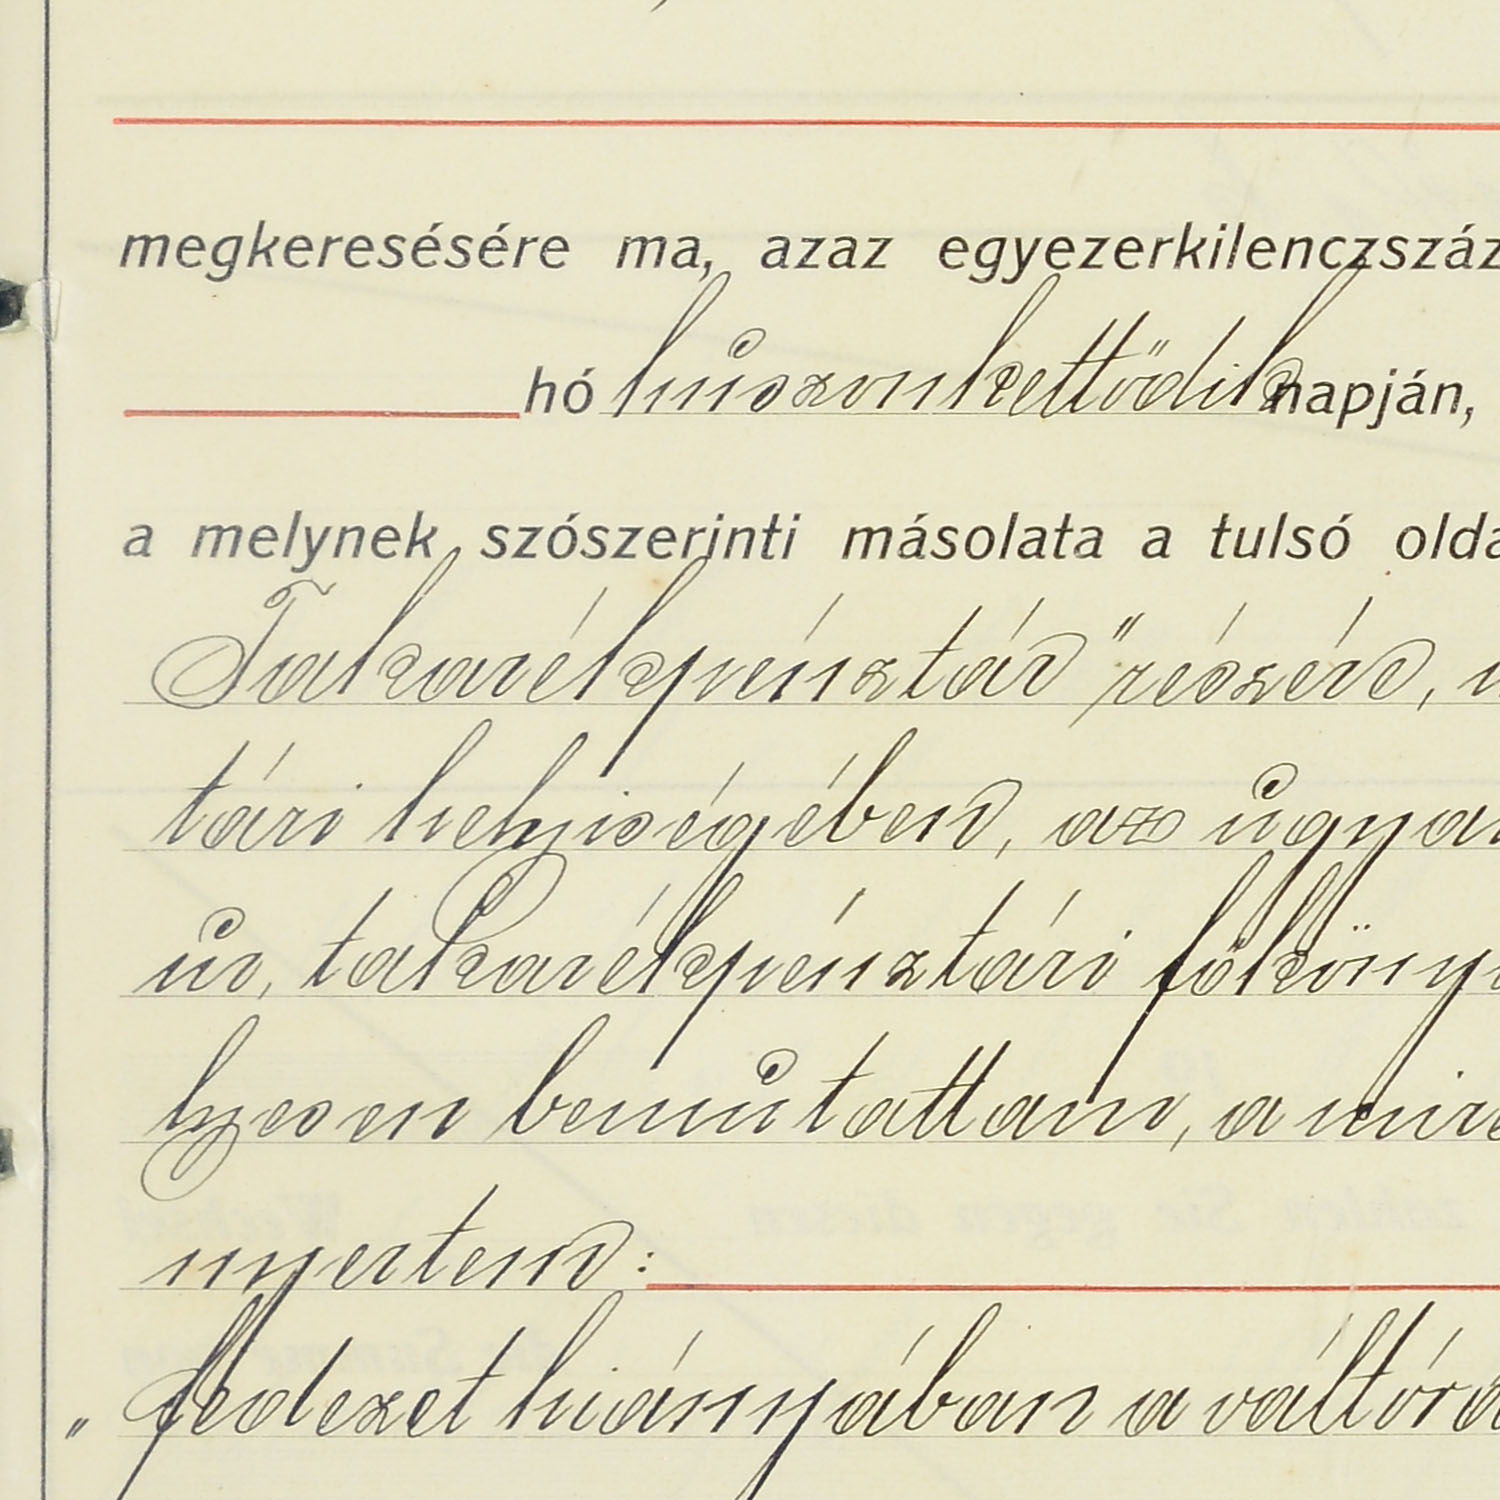 megkeresésére ma, azaz egyezerkilenczszáz
hó húszonkettödik napján,
a melynek szószerinti másolata a tulsó olda
Takarékpénztár" részére,
tári helyiségében, az úgyan
úr, takarékpénztári főköny
lyesen bemútattam, a mire
nyertem:
"fedezet hiányában a váltóra